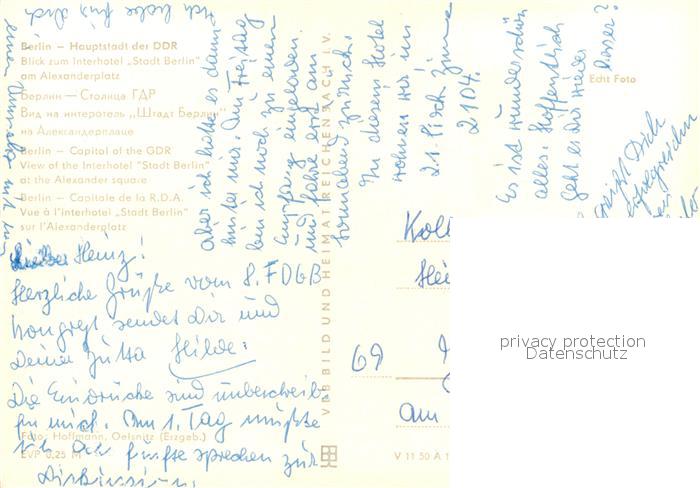 Berlin – Hauptstadt der DDR
Blick zum Interhotel „Stadt Berlin"
am Alexanderplatz
Берлин – Столица ГДР
Вид на интеротель „Штадт Берлин"
на Александерплаце
Berlin – Capital of the GDR
View of the Interhotel "Stadt Berlin"
at the Alexander square
Berlin – Capitale de la R.D.A.
Vue à l'interhotel „Stadt Berlin"
sur l'Alexanderplatz
Lieber Heinz!
Herzliche Grüße vom 8. FDGB
Kongreß sendet Dir und
Deine Jutta Hilde.
Die Eindrücke sind unbeschreib-
für mich. Am 1. Tag mußte
ich als fünfte sprechen zur
Diskussion,
aber ich hatte es dann
hinter mir. Am Freitag
bin ich noch zu einem
Empfang eingeladen
und fahre erst am
Sonnabend zurück.
In diesem Hotel
wohnen wir im
21. Stock Zimm
2104.
Es ist wunderschön
alles. Hoffentlich
geht es Dir wieder
besser?
Ich
Dich
einen
mit
Foto: Hoffmann, Oelsnitz (Erzgeb.)
EVP 0,25 M
VEB BILD UND HEIMAT REICHENBACH I. V.
V 11 50 A 1
Echt Foto
69
am
privacy protection
Datenschutz